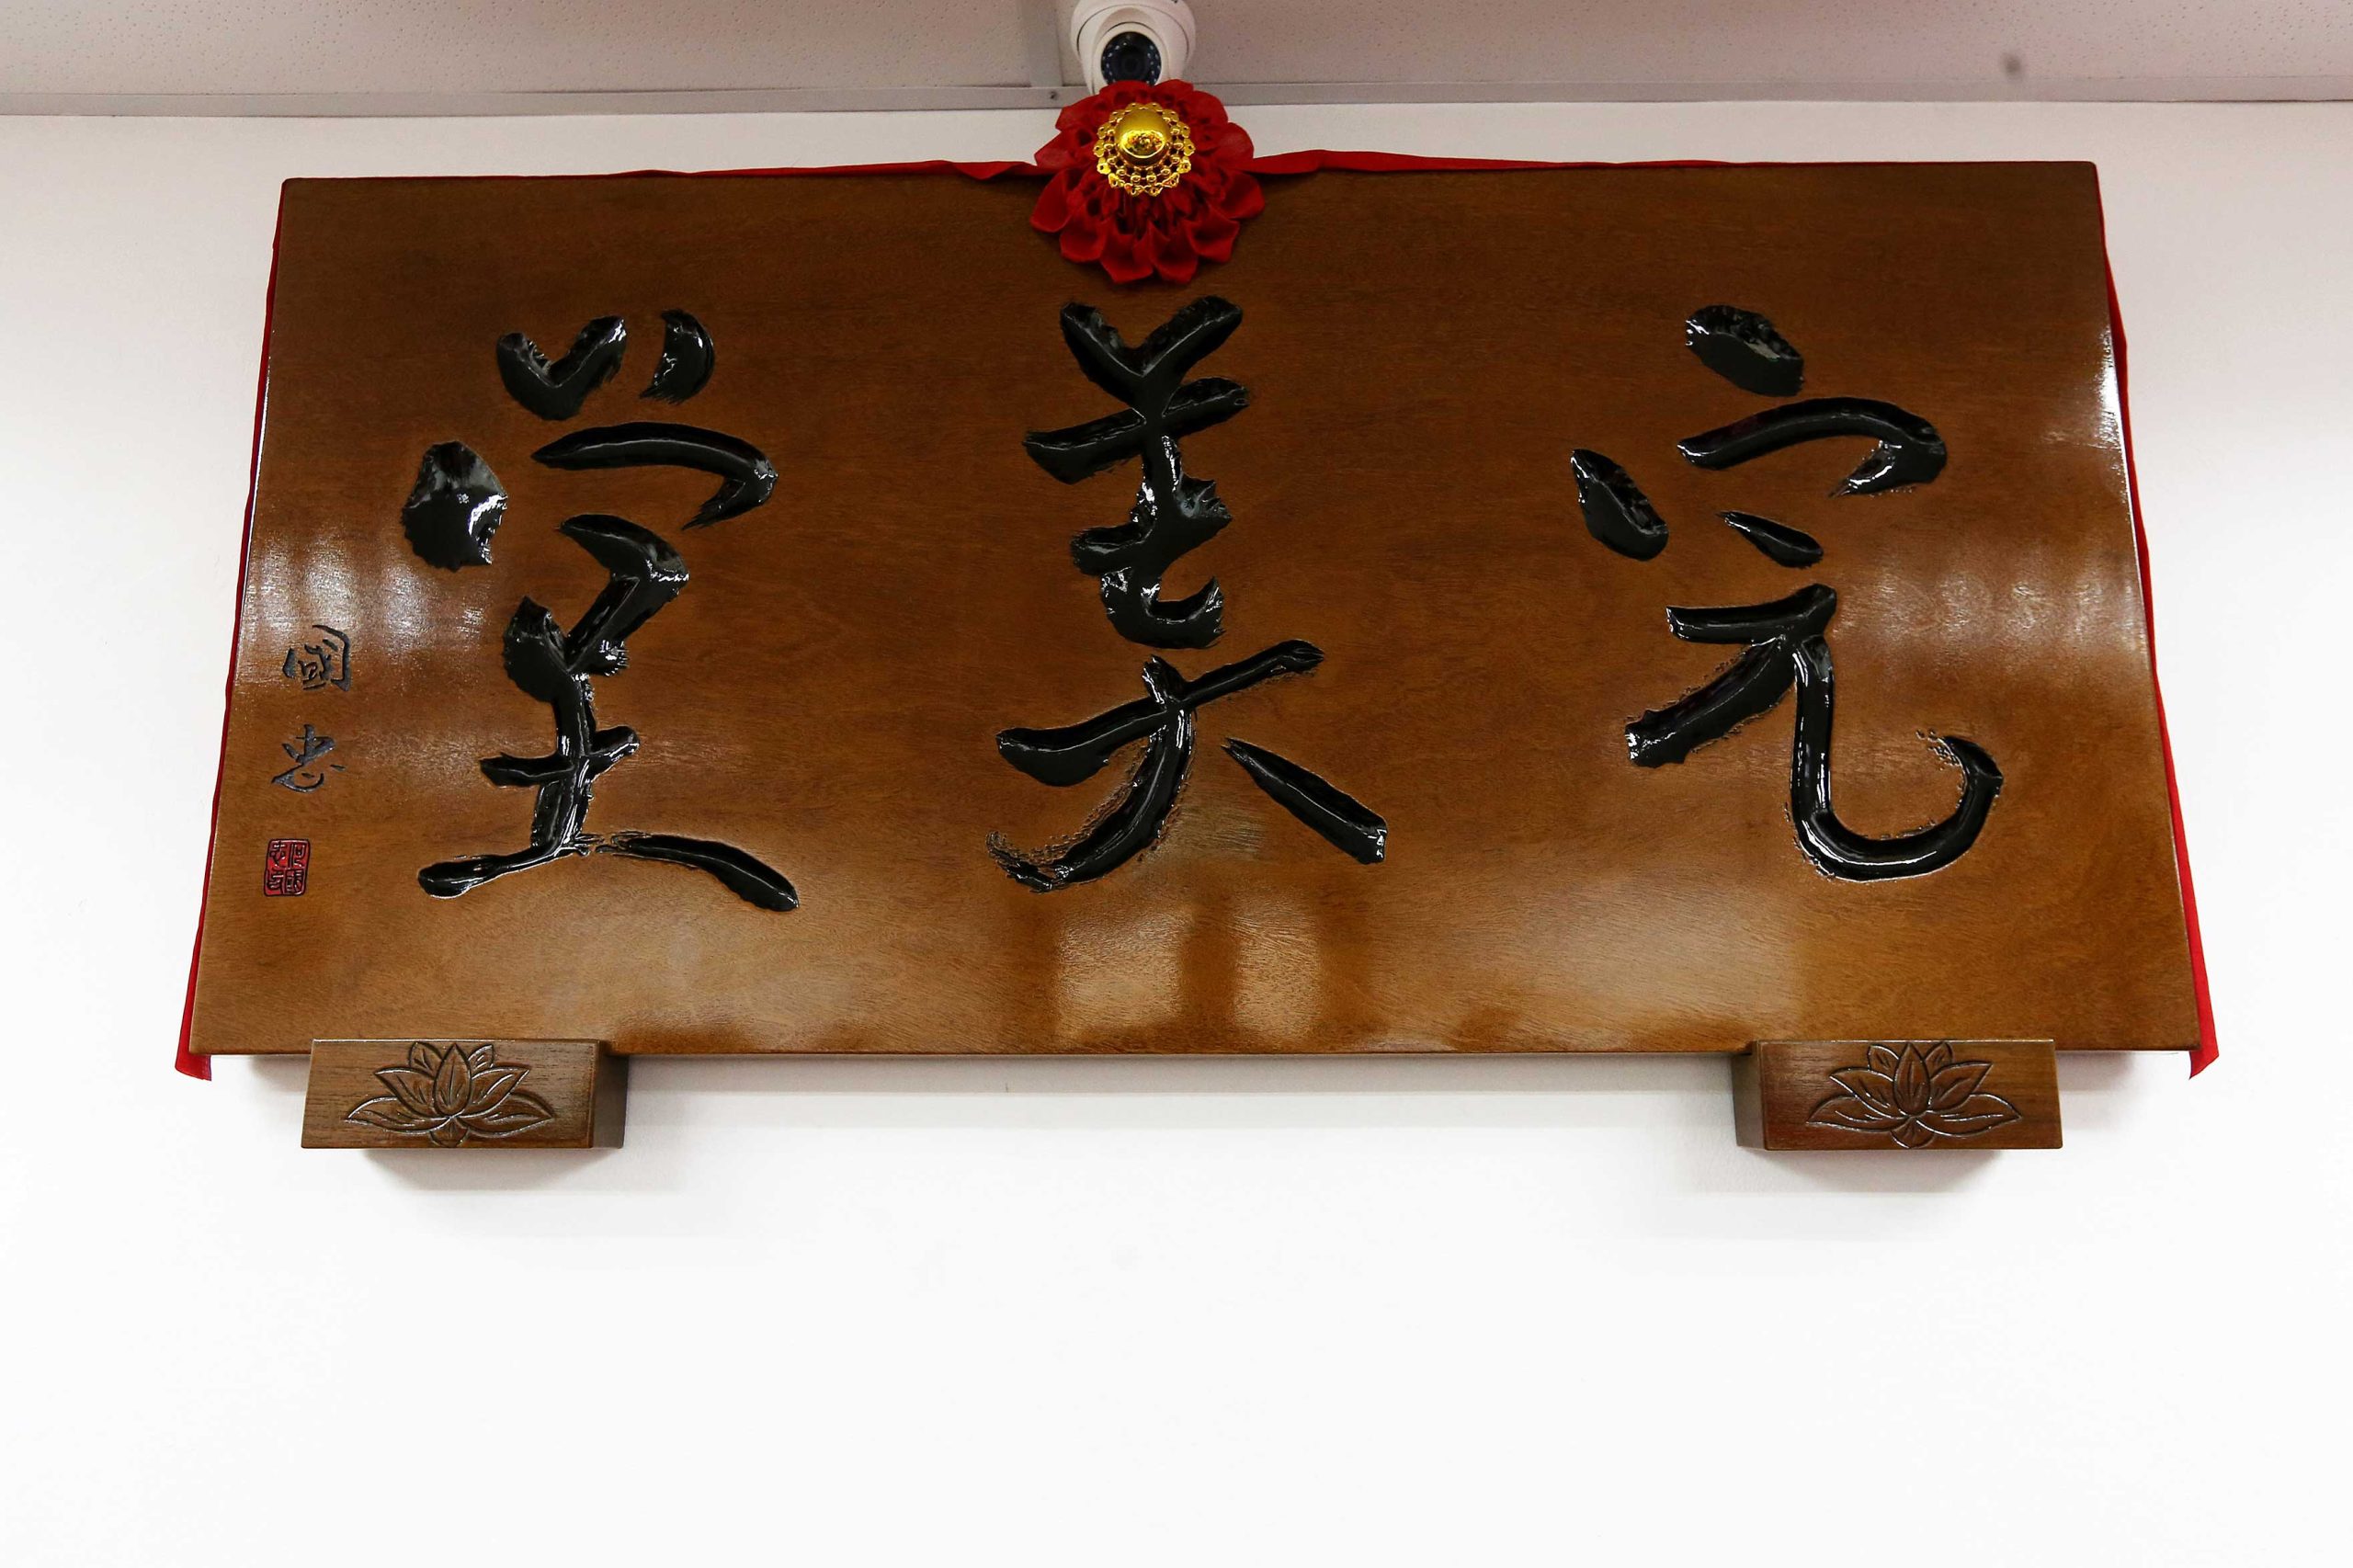 完美堂
國忠